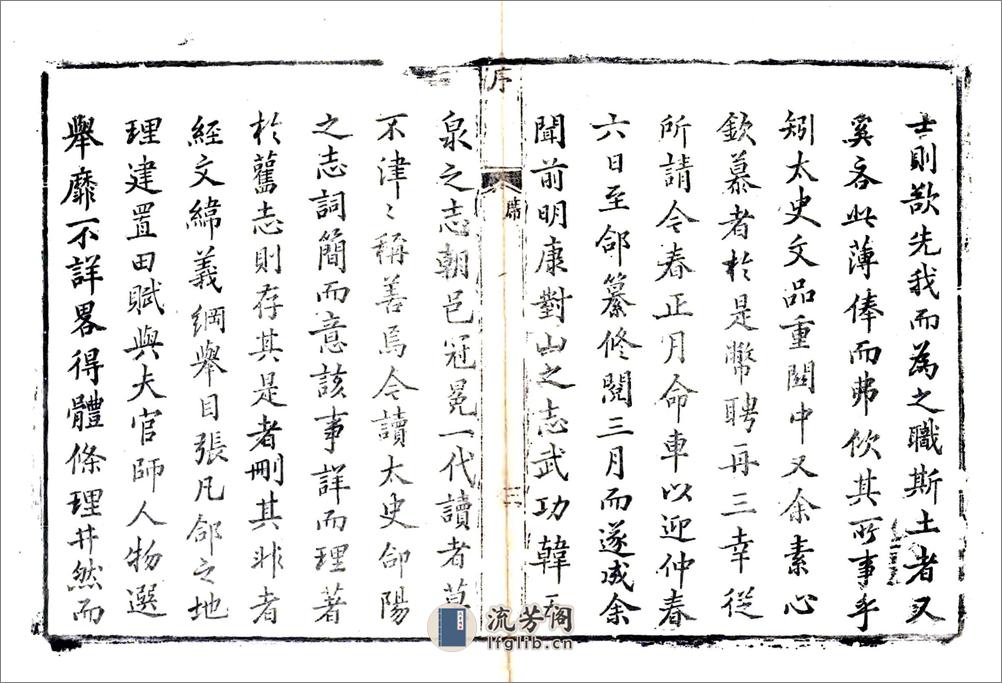 士則欲先我而為之職斯土者又
奚吝此薄俸而弗佽其所事乎
矧太史文品重關中又余素心
欽慕者於是幣聘再三幸從
所請今春正月命車以迎仲春
六日至郃纂修閱三月而遂成余
聞前明康對山之志武功韓五
序
序
三
泉之志朝邑冠冕一代讀者莫
不津〻稱善焉今讀太史郃陽
之志詞簡而意該事詳而理著
於舊志則存其是者刪其非者
經文緯義綱舉目張凡郃之地
理建置田賦與夫官師人物選
舉靡不詳畧得體條理井然而
流芳阁
lfglib.cn